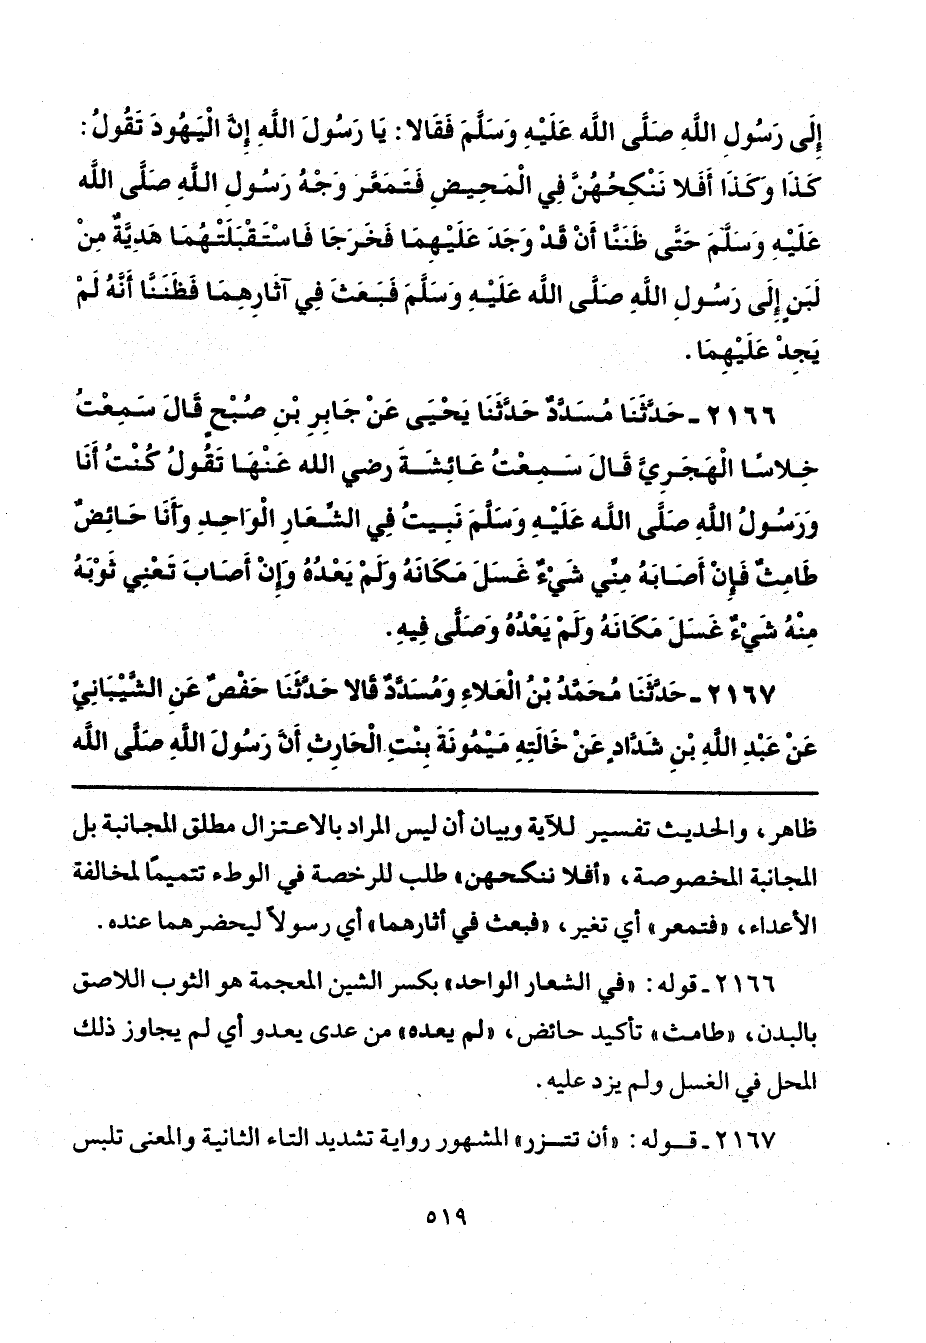 إِلَى رَسُولِ اللَّهِ صَلَّى الله عَلَيْهِ وَسَلَّمَ فَقَالا: يَا رَسُولَ اللَّهِ إِنَّ الْيَهُودَ تَقُولُ:
كَذَا وَكَذَا أَفَلا نَنْكِحُهُنَّ فِي الْمَحِيضِ فَتَمَعَّرَ وَجْهُ رَسُولِ اللَّهِ صَلَّى الله
عَلَيْهِ وَسَلَّمَ حَتَّى ظَنَنَّا أَنْ قَدْ وَجَدَ عَلَيْهِمَا فَخَرَجَا فَاسْتَقْبَلَتْهُمَا هَدِيَّةٌ مِنْ
لَبَنٍ إِلَى رَسُولِ اللَّهِ صَلَّى الله عَلَيْهِ وَسَلَّمَ فَبَعَثَ فِي آثَارِهِمَا فَظَنَنَّا أَنَّهُ لَمْ
يَجِدْ عَلَيْهِمَا.
٢١٦٦ - حَدَّثَنَا مُسَدَّدٌ حَدَّثَنَا يَحْيَى عَنْ جَابِرِ بْنِ صُبْحٍ قَالَ سَمِعْتُ
خِلاسًا الْهَجَرِيَّ قَالَ سَمِعْتُ عَائِشَةَ رضي الله عَنْهَا تَقُولُ كُنْتُ أَنَا
وَرَسُولُ اللَّهِ صَلَّى الله عَلَيْهِ وَسَلَّمَ نَبِيتُ فِي الشِّعَارِ الْوَاحِدِ وَأَنَا حَائِضٌ
طَامِثٌ فَإِنْ أَصَابَهُ مِنِّي شَيْءٌ غَسَلَ مَكَانَهُ وَلَمْ يَعْدُهُ وَإِنْ أَصَابَ تَعْنِي ثَوْبَهُ
مِنْهُ شَيْءٌ غَسَلَ مَكَانَهُ وَلَمْ يَعْدُهُ وَصَلَّى فِيهِ.
٢١٦٧ - حَدَّثَنَا مُحَمَّدُ بْنُ الْعَلاءِ وَمُسَدَّدٌ قَالا حَدَّثَنَا حَفْصٌ عَنِ الشَّيْبَانِيِّ
عَنْ عَبْدِ اللَّهِ بْنِ شَدَّادٍ عَنْ خَالَتِهِ مَيْمُونَةَ بِنْتِ الْحَارِثِ أَنَّ رَسُولَ اللَّهِ صَلَّى الله
ظاهر، والحديث تفسير للآية وبيان أن ليس المراد بالاعتزال مطلق المجانبة بل
المجانبة المخصوصة، «أفلا ننكحهن» طلب للرخصة في الوطء تتميمًا لمخالفة
الأعداء، «فتمعر» أي تغير، «فبعث في أثارهما» أي رسولاً ليحضرهما عنده.
٢١٦٦ - قوله: «في الشعار الواحد» بكسر الشين المعجمة هو الثوب اللاصق
بالبدن، «طامث» تأكيد حائض، «لم يعده» من عدى يعدو أي لم يجاوز ذلك
المحل في الغسل ولم يزد عليه.
٢١٦٧ - قوله: «أن تتزر» المشهور رواية تشديد التاء الثانية والمعنى تلبس
٥١٩